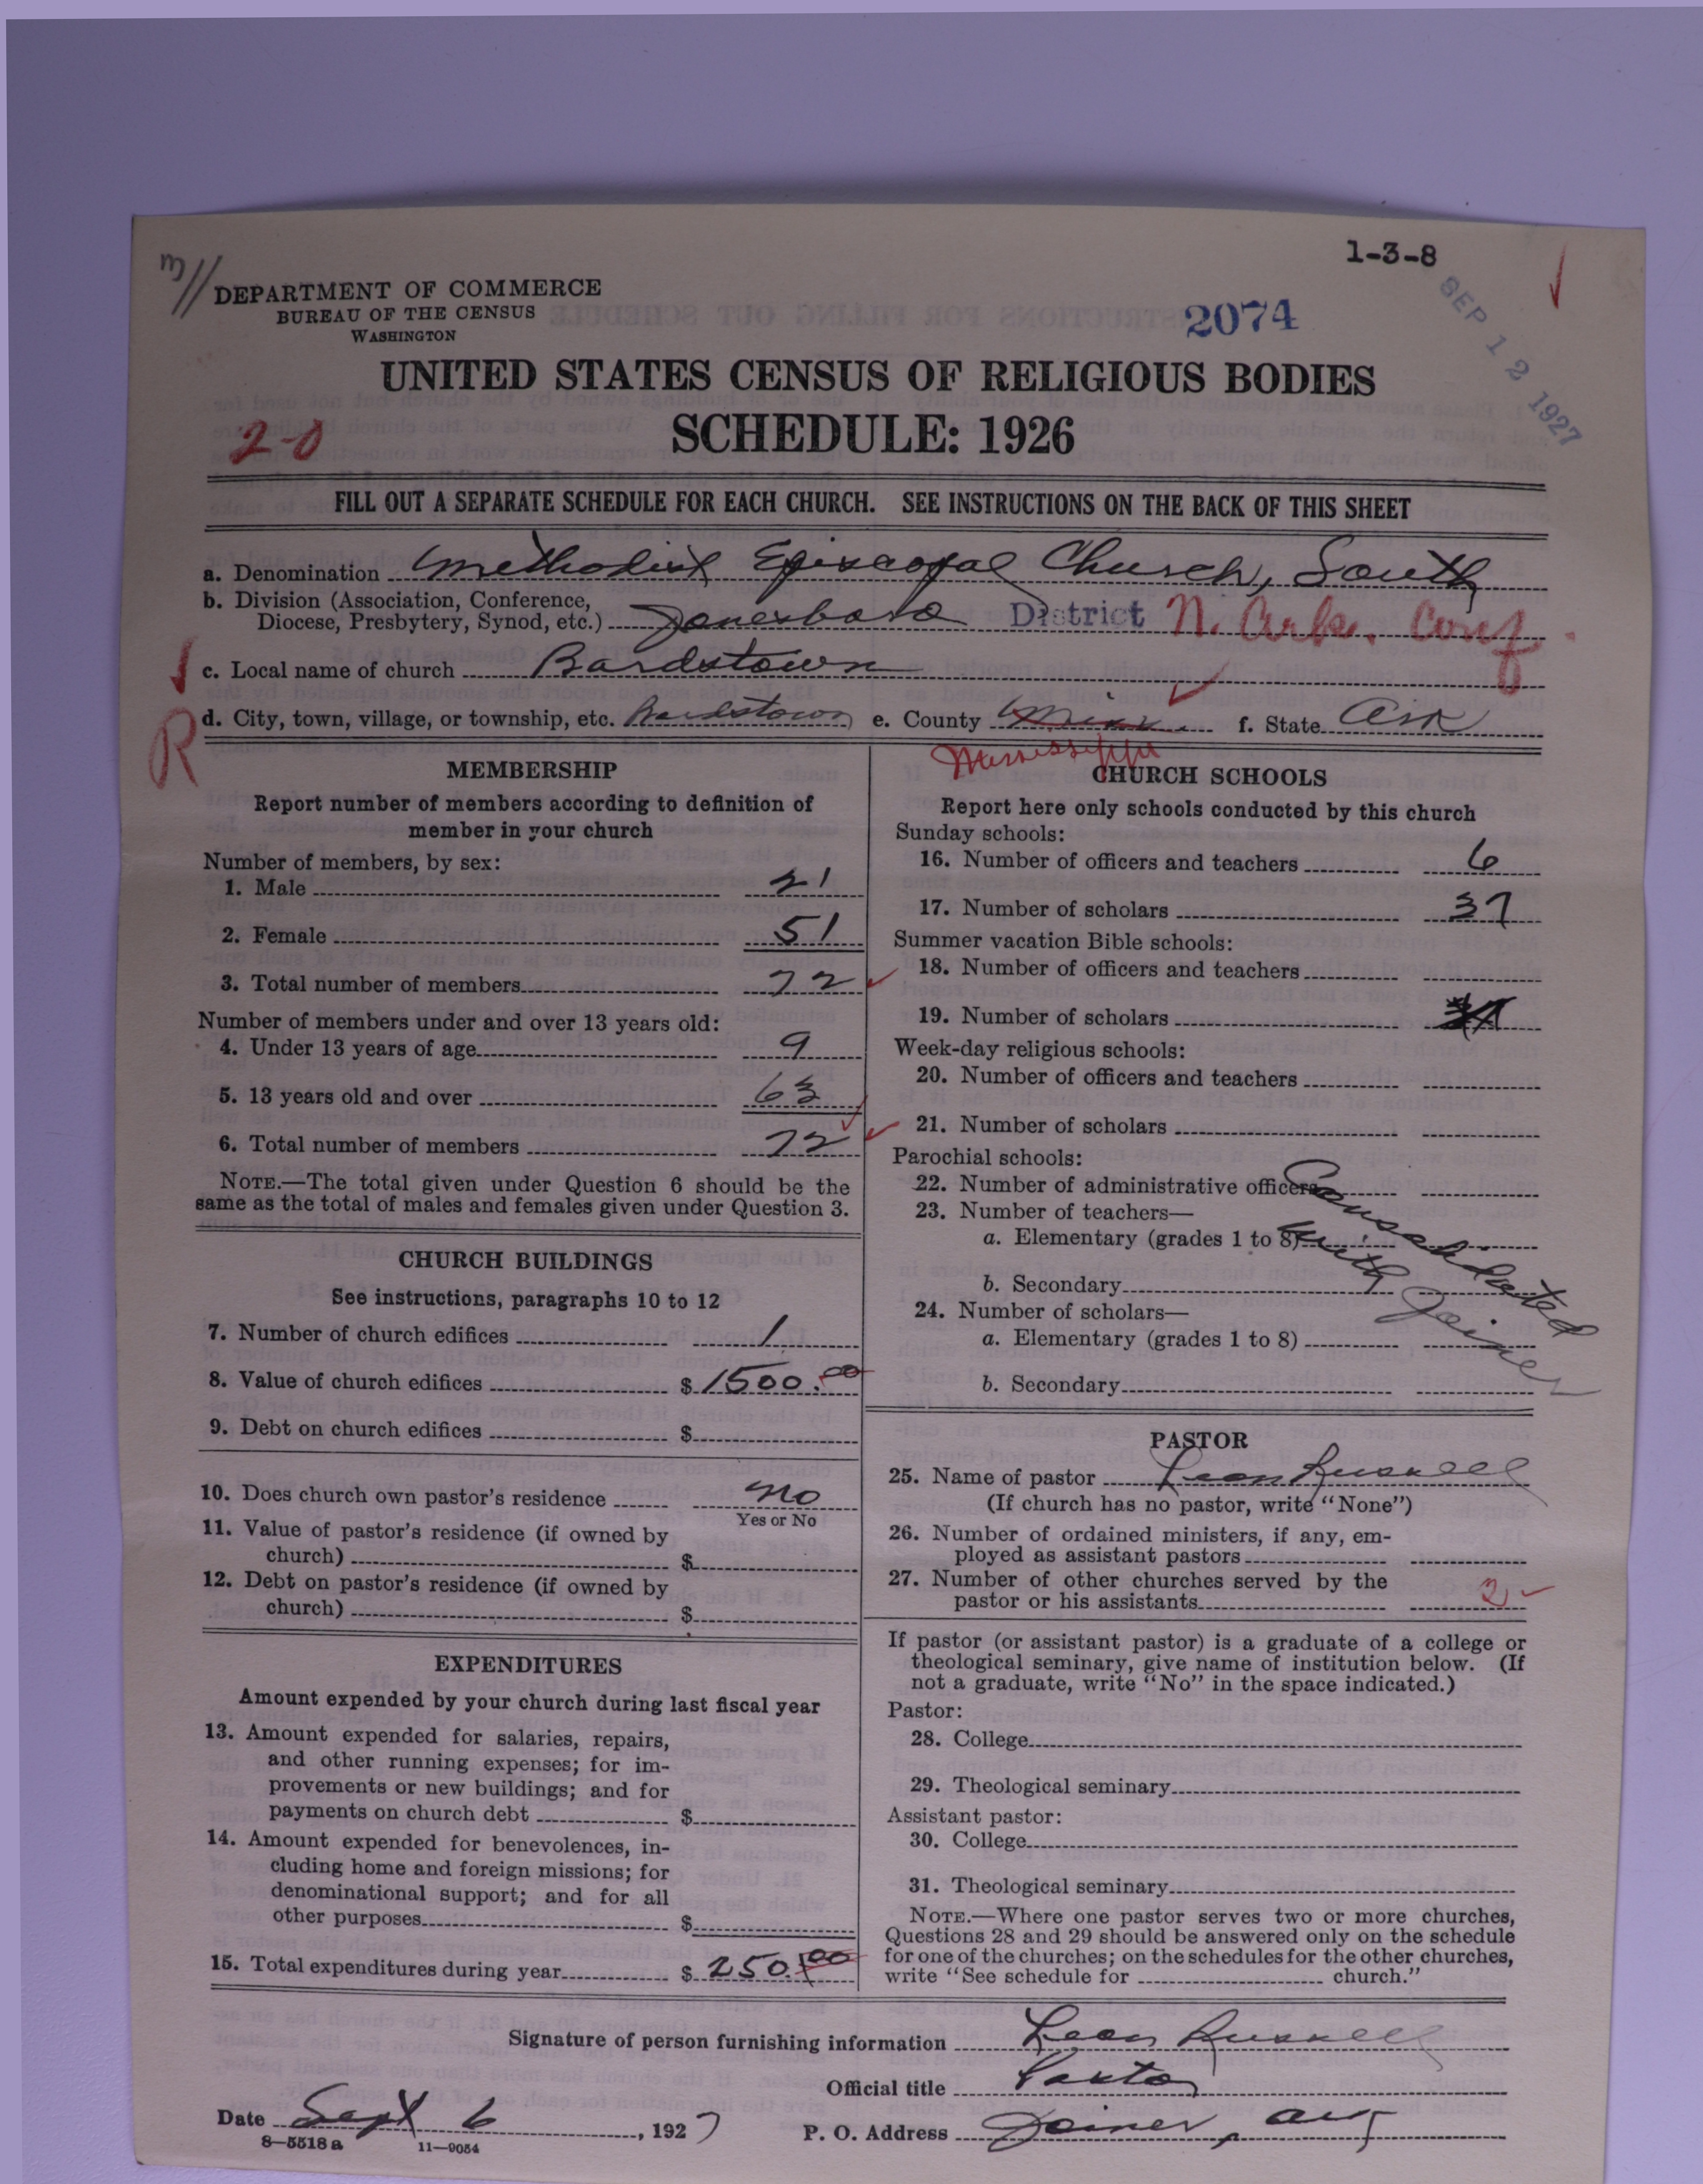 1-3-8
DEPARTMENT OF COMMERCE
BUREAU OF THE CENSUS
WASHINGTON
2074
SEP 12 1927
UNITED STATES CENSUS OF RELIGIOUS BODIES
SCHEDULE: 1926
2-0
FILL OUT A SEPARATE SCHEDULE FOR EACH CHURCH. SEE INSTRUCTIONS ON THE BACK OF THIS SHEET
a. Denomination Methodist Episcopal Church, South
b. Division (Association, Conference, Diocese, Presbytery, Synod, etc.) Jonesboro District N. Ark. Conf.
c. Local name of church Bardstown
R
d. City, town, village, or township, etc. Bardstown e. County Miss. f. State Ark
Mississippi
MEMBERSHIP
Report number of members according to definition of
member in your church
Number of members, by sex:
1. Male 21
2. Female 51
3. Total number of members 72
Number of members under and over 13 years old:
4. Under 13 years of age 9
5. 13 years old and over 63
6. Total number of members 72
NOTE.—The total given under Question 6 should be the
same as the total of males and females given under Question 3.
CHURCH BUILDINGS
See instructions, paragraphs 10 to 12
7. Number of church edifices 1
8. Value of church edifices $ 1500.00
9. Debt on church edifices $
10. Does church own pastor's residence no
Yes or No
11. Value of pastor's residence (if owned by
church) $
12. Debt on pastor's residence (if owned by
church) $
EXPENDITURES
Amount expended by your church during last fiscal year
13. Amount expended for salaries, repairs,
and other running expenses; for im-
provements or new buildings; and for
payments on church debt $
14. Amount expended for benevolences, in-
cluding home and foreign missions; for
denominational support; and for all
other purposes $
15. Total expenditures during year $ 250.00
CHURCH SCHOOLS
Report here only schools conducted by this church
Sunday schools:
16. Number of officers and teachers 6
17. Number of scholars 37
Summer vacation Bible schools:
18. Number of officers and teachers
19. Number of scholars
Week-day religious schools:
20. Number of officers and teachers
21. Number of scholars
Parochial schools:
22. Number of administrative officers
23. Number of teachers—
a. Elementary (grades 1 to 8)
b. Secondary
24. Number of scholars—
a. Elementary (grades 1 to 8)
b. Secondary
Consolidated
with Joiner
PASTOR
25. Name of pastor Leon Russell
(If church has no pastor, write "None")
26. Number of ordained ministers, if any, em-
ployed as assistant pastors
27. Number of other churches served by the
pastor or his assistants 2
If pastor (or assistant pastor) is a graduate of a college or
theological seminary, give name of institution below. (If
not a graduate, write "No" in the space indicated.)
Pastor:
28. College
29. Theological seminary
Assistant pastor:
30. College
31. Theological seminary
NOTE.—Where one pastor serves two or more churches,
Questions 28 and 29 should be answered only on the schedule
for one of the churches; on the schedules for the other churches,
write "See schedule for church."
Signature of person furnishing information Leon Russell
Official title Pastor
Date Sept 6, 1927 P. O. Address Joiner, Ark
8-5518 a 11-9054